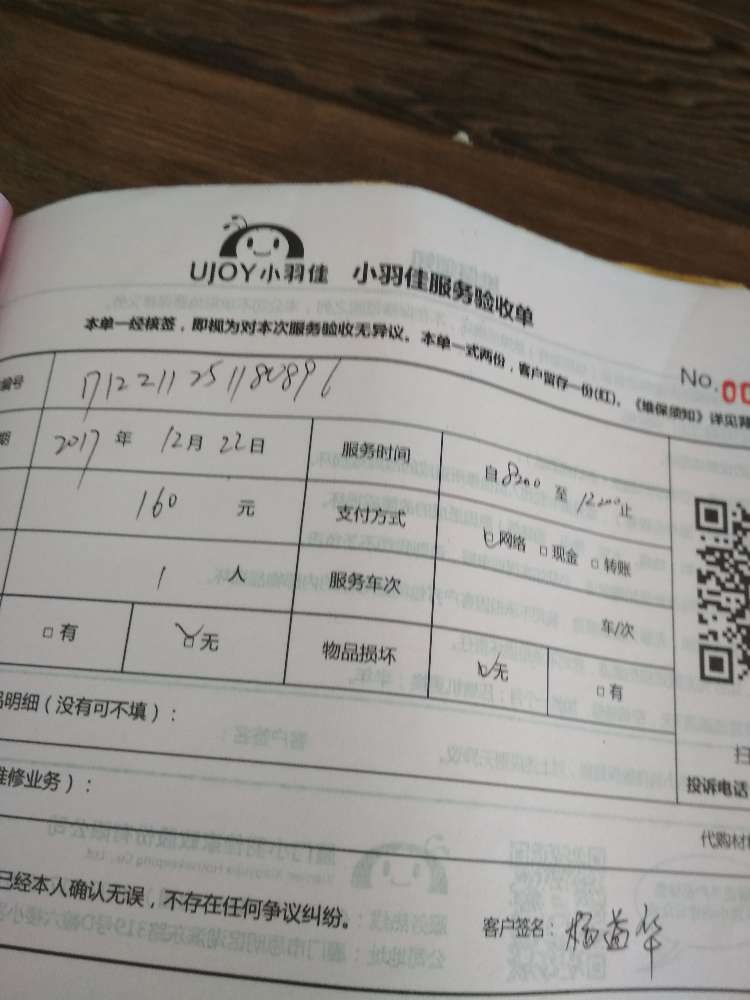 UJOY小羽佳 小羽佳服务验收单
本单一经核签，即视为对本次服务验收无异议。本单一式两份，客户留存一份(红)。《维保须知》详见背
No.00
编号 171221125118089 6
期 2017 年 12 月 22 日 服务时间 自 8:00 至 12:00 止
160 元 支付方式 ☑网络 □现金 □转账
1 人 服务车次 车/次
□有 ☑无 物品损坏 ☑无 □有
品明细（没有可不填）：
扫
投诉电话
维修业务）：
代购材
已经本人确认无误，不存在任何争议纠纷。
客户签名：杨益华